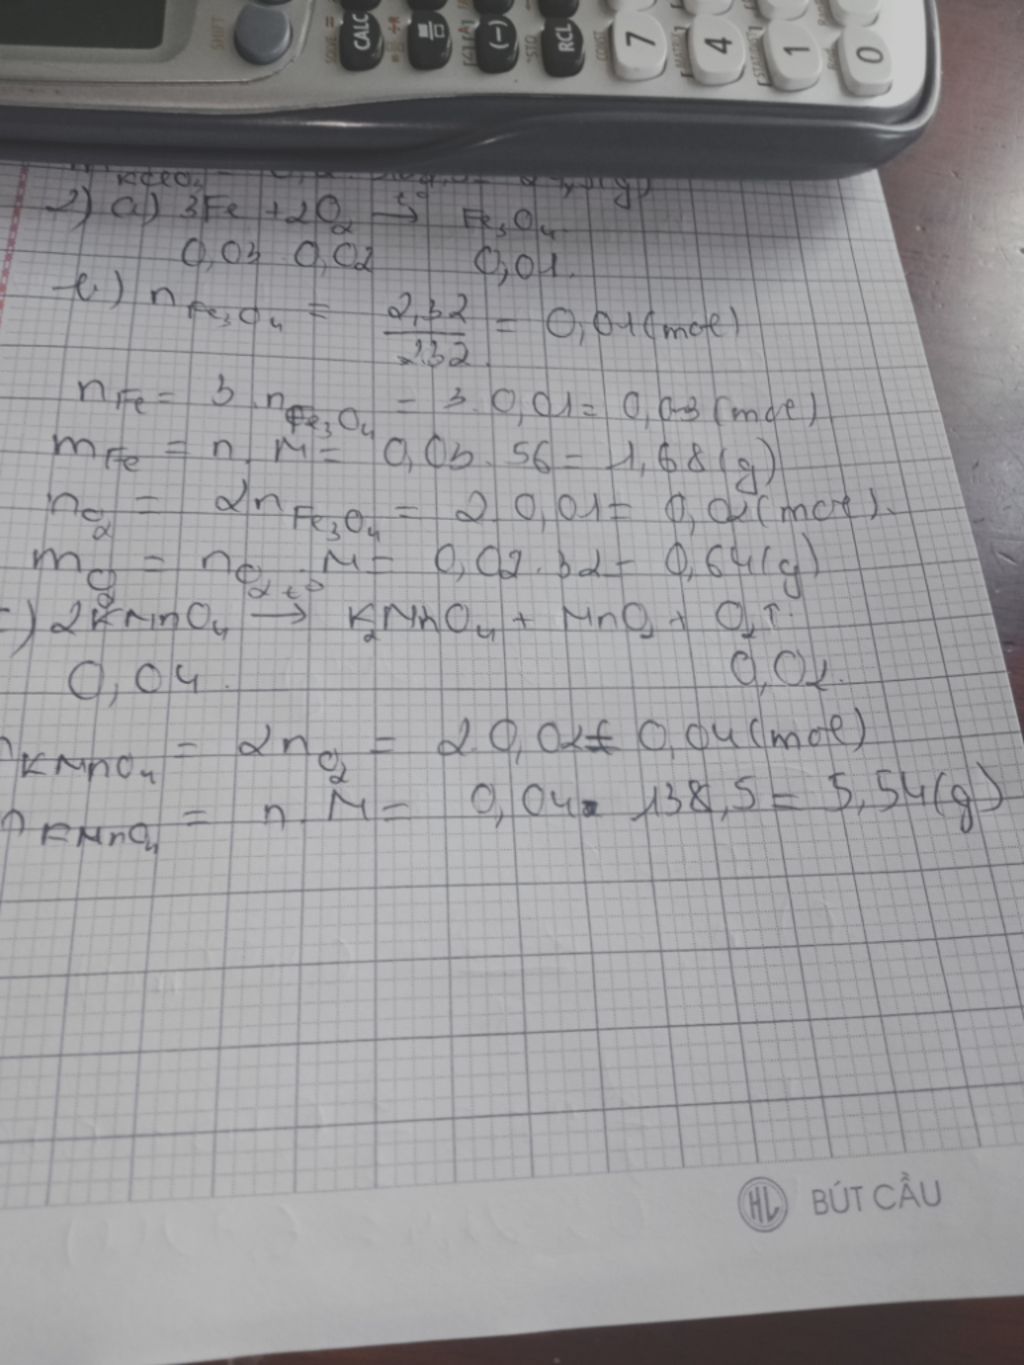 SHIFT
SOLVE =
CALC
(-)
STO
RCL
CONST
7
4
1
0
2) a) 3Fe + 2O₂ →tº Fe₃O₄
0,03 0,02 0,01.
b.) nFe₃O₄ = 2,32/232 = 0,01(mol)
nFe = 3.nFe₃O₄ = 3.0,01= 0,03(mol)
mFe = n.M= 0,03.56= 1,68(g)
nO₂ = 2nFe₃O₄ = 2.0,01= 0,02(mol).
mO₂ = nO₂.M= 0,02.32= 0,64(g)
c) 2KMnO₄ →tº K₂MnO₄ + MnO₂ + O₂↑.
0,04. 0,02.
nKMnO₄ = 2nO₂ = 2.0,02= 0,04(mol)
nKMnO₄ = n.M= 0,04. 138,5= 5,54(g)
HL BÚT CẦU